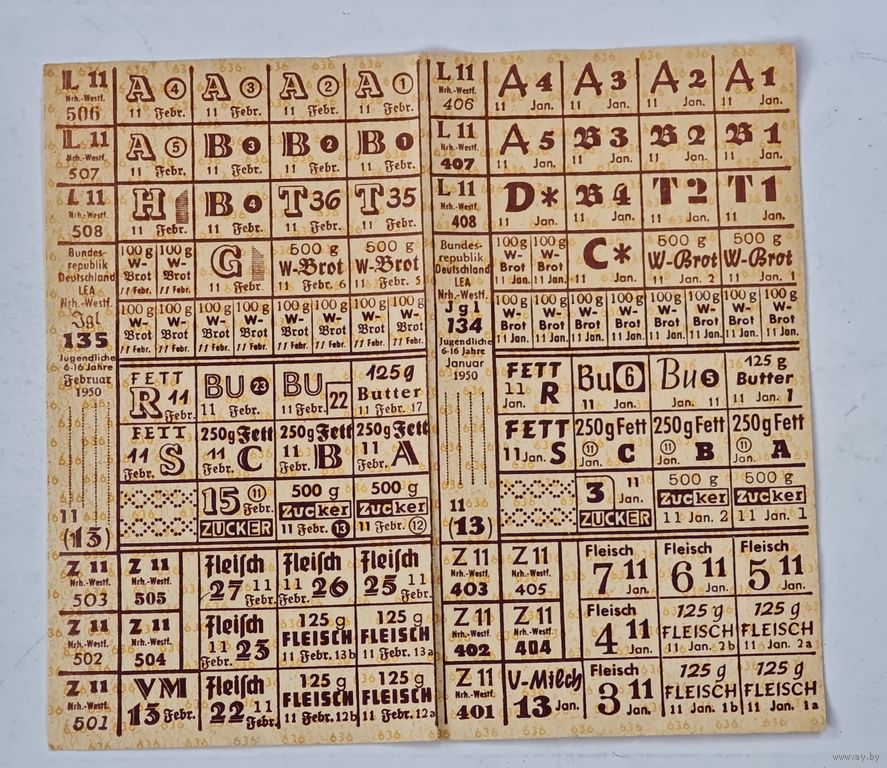 L 11
Nrh.-Westf.
506
A 4
11 Febr.
A 3
11 Febr.
A 2
11 Febr.
A 1
11 Febr.
L 11
Nrh.-Westf.
507
A 5
11 Febr.
B 3
11 Febr.
B 2
11 Febr.
B 1
11 Febr.
L 11
Nrh.-Westf.
508
H
11 Febr.
B 4
11 Febr.
T 36
11 Febr.
T 35
11 Febr.
Bundes-
republik
Deutschland
LEA
Nrh.-Westf.
Jgl
135
Jugendliche
6-16 Jahre
Februar
1950
11
(13)
100 g
W-
Brot
11 Febr.
100 g
W-
Brot
11 Febr.
G
11 Febr.
500 g
W-Brot
11 Febr. 6
500 g
W-Brot
11 Febr. 5
100 g
W-
Brot
11 Febr.
100 g
W-
Brot
11 Febr.
100 g
W-
Brot
11 Febr.
100 g
W-
Brot
11 Febr.
100 g
W-
Brot
11 Febr.
100 g
W-
Brot
11 Febr.
100 g
W-
Brot
11 Febr.
100 g
W-
Brot
11 Febr.
FETT
R 11
Febr.
BU 23
11 Febr.
BU
11 Febr. 22
125g
Butter
11 Febr. 17
FETT
11 S
Febr.
250g Fett
11 C
Febr.
250g Fett
11 B
Febr.
250g Fett
11 A
Febr.
15 11
Febr.
ZUCKER
500 g
Zucker
11 Febr. 13
500 g
Zucker
11 Febr. 12
Z 11
Nrh.-Westf.
503
Z 11
Nrh.-Westf.
505
Fleisch
27 11
Febr.
Fleisch
11 26
Febr.
Fleisch
25 11
Febr.
Z 11
Nrh.-Westf.
502
Z 11
Nrh.-Westf.
504
Fleisch
11 23
Febr.
125 g
FLEISCH
11 Febr. 13b
125 g
FLEISCH
11 Febr. 13a
Z 11
Nrh.-Westf.
501
VM
13 Febr.
Fleisch
22 11
Febr.
125 g
FLEISCH
11 Febr. 12b
125 g
FLEISCH
11 Febr. 12a
L 11
Nrh.-Westf.
406
A 4
11 Jan.
A 3
11 Jan.
A 2
11 Jan.
A 1
11 Jan.
L 11
Nrh.-Westf.
407
A 5
11 Jan.
B 3
11 Jan.
B 2
11 Jan.
B 1
11 Jan.
L 11
Nrh.-Westf.
408
D*
11 Jan.
B 4
11 Jan.
T 2
11 Jan.
T 1
11 Jan.
Bundes-
republik
Deutschland
LEA
Nrh.-Westf.
Jgl
134
Jugendliche
6-16 Jahre
Januar
1950
11
(13)
100 g
W-
Brot
11 Jan.
100 g
W-
Brot
11 Jan.
C*
11 Jan.
500 g
W-Brot
11 Jan. 2
500 g
W-Brot
11 Jan. 1
100 g
W-
Brot
11 Jan.
100 g
W-
Brot
11 Jan.
100 g
W-
Brot
11 Jan.
100 g
W-
Brot
11 Jan.
100 g
W-
Brot
11 Jan.
100 g
W-
Brot
11 Jan.
100 g
W-
Brot
11 Jan.
100 g
W-
Brot
11 Jan.
FETT
11 R
Jan.
Bu 6
11 Jan.
Bu 5
Jan. 11
125 g
Butter
11 Jan. 1
FETT
11 Jan. S
250g Fett
11 C
Jan.
250g Fett
11 B
Jan.
250g Fett
11 A
Jan.
3 11
Jan.
ZUCKER
500 g
Zucker
11 Jan. 2
500 g
Zucker
11 Jan. 1
Z 11
Nrh.-Westf.
403
Z 11
Nrh.-Westf.
405
Fleisch
7 11
Jan.
Fleisch
6 11
Jan.
Fleisch
5 11
Jan.
Z 11
Nrh.-Westf.
402
Z 11
Nrh.-Westf.
404
Fleisch
4 11
Jan.
125 g
FLEISCH
11 Jan. 2b
125 g
FLEISCH
11 Jan. 2a
Z 11
Nrh.-Westf.
401
V-Milch
13 Jan.
Fleisch
3 11
Jan.
125 g
FLEISCH
11 Jan. 1b
125 g
FLEISCH
11 Jan. 1a
www.ay.by